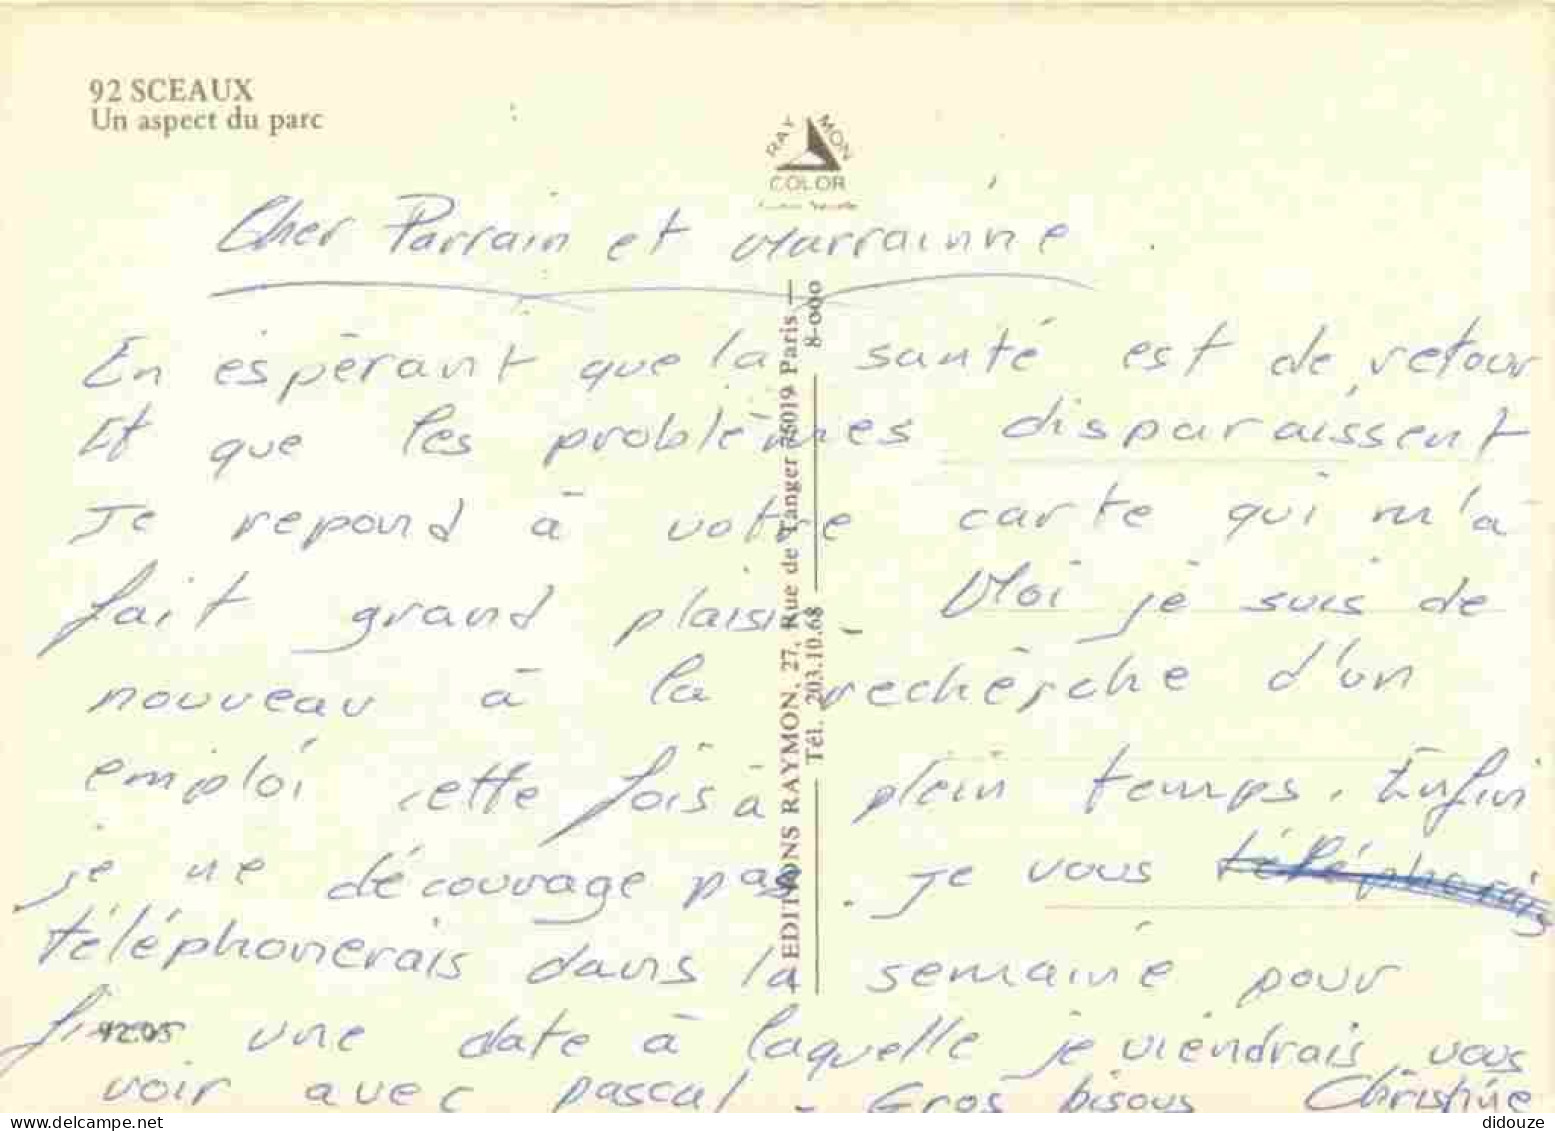 92 SCEAUX
Un aspect du parc
RAYMON
COLOR
Cher Parrain et Marrainne
En espérant que la santé est de retour
Et que les problèmes disparaissent
Je repond à votre carte qui m'à
fait grand plaisir. Moi je suis de
nouveau à la recherche d'un
emploi cette fois à plein temps. Enfin
je ne décourage pas. Je vous téléphonerais
téléphonerais dans la semaine pour
fixer une date à laquelle je viendrais vous
voir avec pascal. Gros bisous Christine
EDITIONS RAYMON, 27, Rue de Tanger 75019 Paris —
Tél. 203.10.68 8-000
92.05
didouze